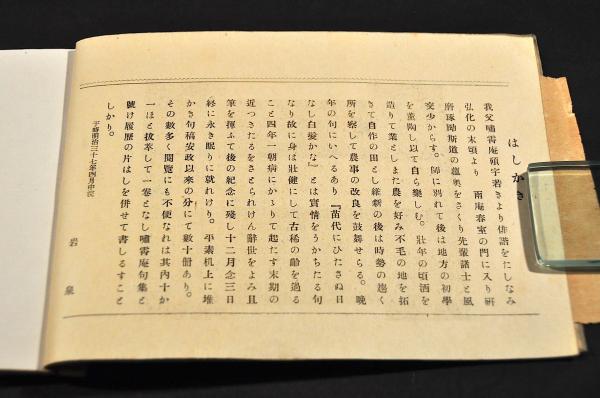 はしがき
我父嘯霄庵碩宇若きより俳諧をたしなみ
弘化の末頃より雨庵春室の門に入り研
磨琢勵斯道の蘊奥をさぐり先輩諸士と風
交少からす。師に別れて後は地方の初學
を薫陶し以て自ら樂しむ。壯年の頃酒を
造りて業としまた農を好み不毛の地を拓
きて自作の田とし維新の後は時勢の趨く
所を察して農事の改良を鼓舞せらる。晩
年の句にいへるあり『苗代にひたさぬ日
なし白髮かな』とは實情をうがちたる句
なり故に身は壯健にして古稀の齢を過る
こと四年一朝病にかゝりて起たす末期の
近つきたるをさとられけん辭世をよみ且
筆を揮ふて後の紀念に殘し十二月念三日
終に永き眠りに就れけり。平素机上に堆
かき句稿安政以來の分にて數十册あり。
その數多く閲覧にも不便なれは其内十か
一ほと拔萃して一卷となし嘯霄庵句集と
號け履歴の片はしを併せて書しるすこと
しかり。
于時明治三十七年四月中浣
岩泉